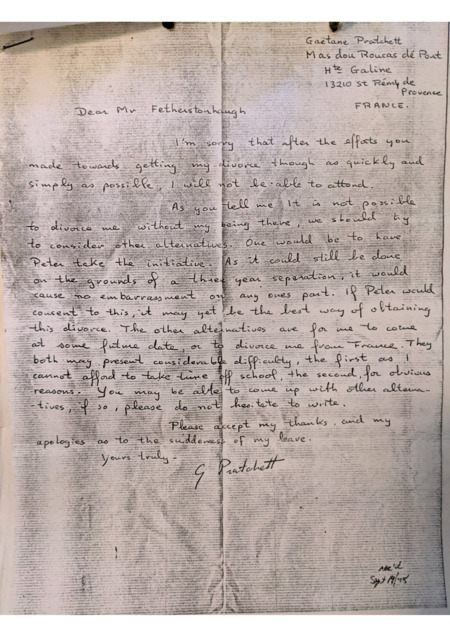 Gaëtane Pratchett
Mas dou Roucas dé Pont
Hte Galine
13210 St Rémy de
Provence
FRANCE.
Dear Mr Fetherstonhaugh
I'm sorry that after the efforts you
made towards getting my divorce though as quickly and
simply as possible, I will not be able to attend.
As you tell me It is not possible
to divorce me without my being there, we should try
to consider other alternatives. One would be to have
Peter take the initiative. As it could still be done
on the grounds of a three year seperation, it would
cause no embarrassment on any ones part. If Peter would
consent to this, it may yet be the best way of obtaining
this divorce. The other alternatives are for me to come
at some future date, or to divorce me from France. They
both may present considerable difficulty, the first as I
cannot afford to take time off school, the second, for obvious
reasons. You may be able to come up with other alterna-
-tives, if so, please do not hesitate to write.
Please accept my thanks, and my
apologies as to the suddeness of my leave.
Yours truly -
G Pratchett
rec'd